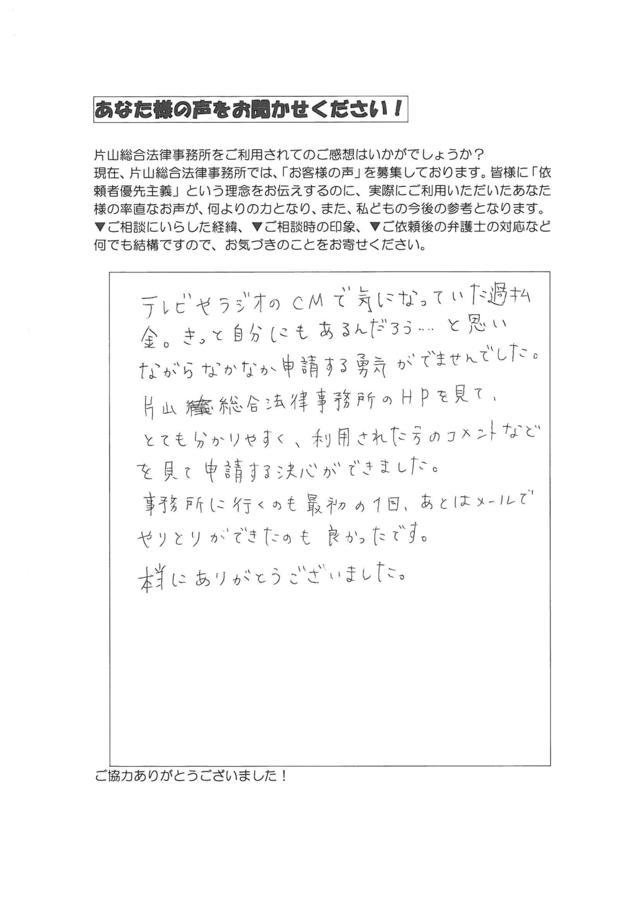 あなた様の声をお聞かせください！
片山総合法律事務所をご利用されてのご感想はいかがでしょうか？
現在、片山総合法律事務所では、「お客様の声」を募集しております。皆様に「依
頼者優先主義」という理念をお伝えするのに、実際にご利用いただいたあなた
様の率直なお声が、何よりの力となり、また、私どもの今後の参考となります。
▼ご相談にいらした経緯、▼ご相談時の印象、▼ご依頼後の弁護士の対応など
何でも結構ですので、お気づきのことをお寄せください。
テレビやラジオのCMで気になっていた過払
金。きっと自分にもあるんだろう…と思い
ながらなかなか申請する勇気がでませんでした。
片山総合法律事務所のHPを見て、
とても分かりやすく、利用された方のコメントなど
を見て申請する決心ができました。
事務所に行くのも最初の1回、あとはメールで
やりとりができたのも良かったです。
本当にありがとうございました。
ご協力ありがとうございました！